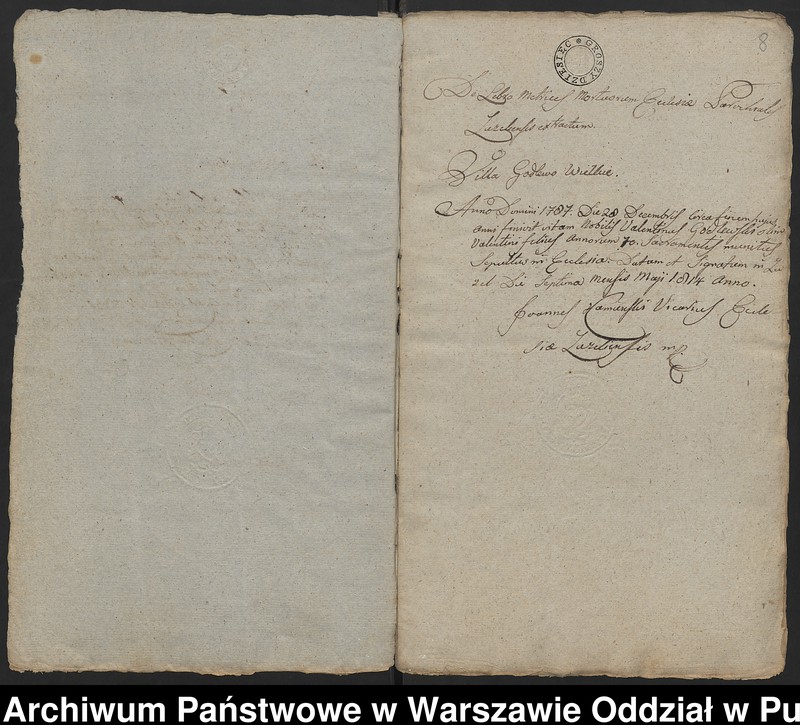 8
GROSZY DZIESIĘC
De Libro Metrices Mortuorum Ecclesiæ Parochialis
Zuzelensis extractum.
Villa Godlewo Wielkie.
Anno Domini 1787. Die 28 Decembris circa finem hujus
Anni finivit vitam Nobilis Valentinus Godlewski olim
Valentini filius Annorum 70. Sacramentis munitus
Sepultus in Ecclesia. Datum et Signatum in Zu
zel Die Septima Mensis Maji 1814 Anno.
Joannes Kamienski Vicarius Eccle
siæ Zuzelensis mp
Archiwum Państwowe w Warszawie Oddział w Pu